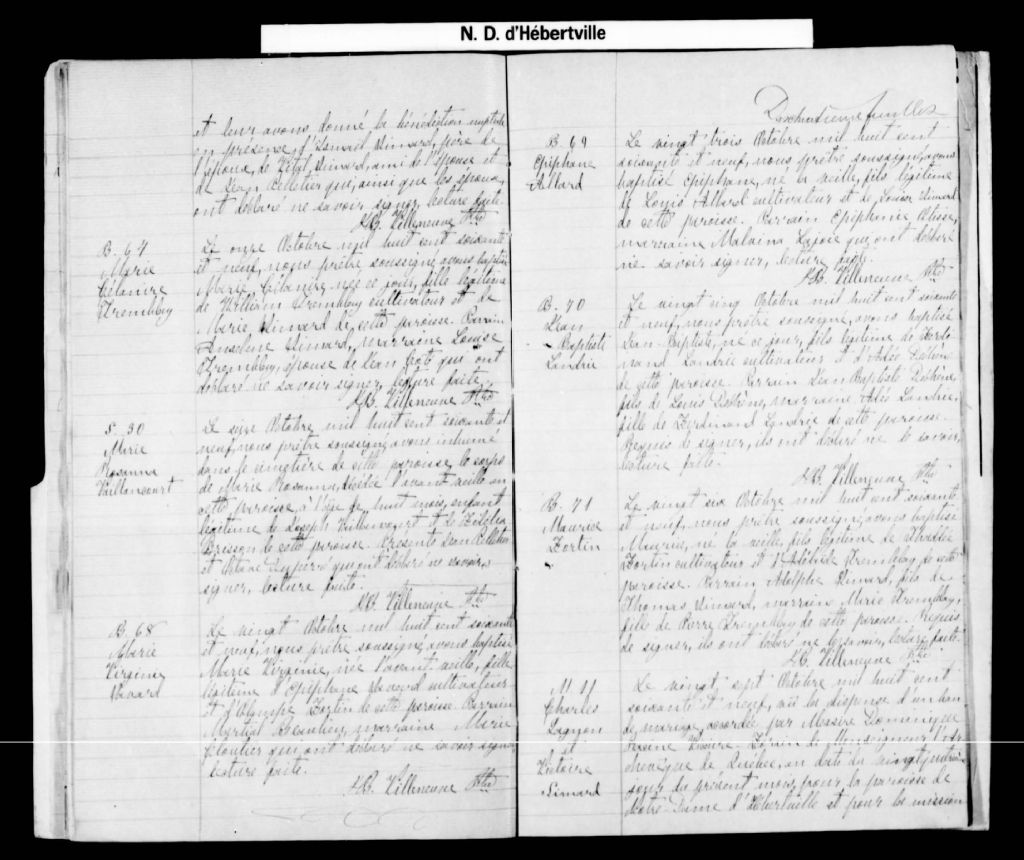 N. D. d'Hébertville
et leur avons donné la bénédiction nuptiale
en présence d' Simard, frère de
l'épouse, de Vital Simard, ami de l'épouse et
de Jean Pelletier qui, ainsi que les époux,
ont déclaré ne savoir signer, lecture faite.
HB. Villeneuve Ptre
B. 64
Marie
Célanire
Tremblay
Le onze Octobre mil huit cent soixante
et neuf, nous prêtre soussigné avons baptisé
Marie Célanire née ce jour, fille légitime
de William Tremblay cultivateur et de
Marie Simard de cette paroisse. Parrain
Anselme Simard, marraine Louise
Tremblay, épouse de Jean qui ont
déclaré ne savoir signer, lecture faite.
HB. Villeneuve Ptre
S. 30
Marie
Rosanna
Vaillancourt
Le seize Octobre mil huit cent soixante et
neuf, nous prêtre soussigné, avons inhumé
dans le cimetière de cette paroisse, le corps
de Marie Rosanna, décédée l'avant veille en
cette paroisse, à l'âge de huit mois, enfant
légitime de Joseph Vaillancourt et de
Brisson de cette paroisse. Présents Jean Pelletier
et qui ont déclaré ne savoir
signer, lecture faite.
HB. Villeneuve Ptre
B. 68
Marie
Virginie
Savard
Le vingt Octobre mil huit cent soixante
et neuf, nous prêtre soussigné, avons baptisé
Marie Virginie, née l'avant veille, fille
légitime d'Epiphane Savard cultivateur
et d'Olympe Fortin de cette paroisse. Parrain
Myrtial Beaulieu, marraine Marie
Cloutier qui ont déclaré ne savoir signer
lecture faite.
HB. Villeneuve Ptre
B. 69
Epiphane
Allard
Le vingt trois Octobre mil huit cent
soixante et neuf, nous prêtre soussigné, avons
baptisé Epiphane, né la veille, fils légitime
de Louis Allard cultivateur et de Louise Simard
de cette paroisse. Parrain Epiphane
marraine Malvina Lajoie qui ont déclaré
ne savoir signer, lecture faite.
HB. Villeneuve Ptre
B. 70
Jean
Baptiste
Landrie
Le vingt cinq Octobre mil huit cent soixante
et neuf, nous prêtre soussigné, avons baptisé
Jean-Baptiste, né ce jour, fils légitime de Ferdi-
nand Landrie cultivateur et d'Adée
de cette paroisse. Parrain Jean Baptiste
fils de Louis marraine Adée Landrie,
fille de Ferdinand Landrie de cette paroisse.
Requis de signer, ils ont déclaré ne le savoir,
lecture faite.
HB. Villeneuve Ptre
B. 71
Maurice
Fortin
Le vingt six Octobre mil huit cent soixante
et neuf, nous prêtre soussigné avons baptisé
Maurice, né la veille, fils légitime de
Fortin cultivateur et d' Tremblay de cette
paroisse. Parrain Adolphe Simard, fils de
Thomas Simard, marraine Marie Tremblay,
fille de Pierre Tremblay de cette paroisse. Requis
de signer, ils ont déclaré ne le savoir, lecture faite.
HB. Villeneuve Ptre
M 11
Charles
Gagnon
et
Victoire
Simard
Le vingt sept Octobre mil huit cent
soixante et neuf, vû la dispense d'un ban
de mariage, accordée par Messire Dominique
Racine Vicaire-Forain de Monseigneur l'Ar-
chevêque de Québec, en date du vingt quatrième
jour du présent mois, pour la paroisse de
Notre-Dame d'Hébertville et pour les missions